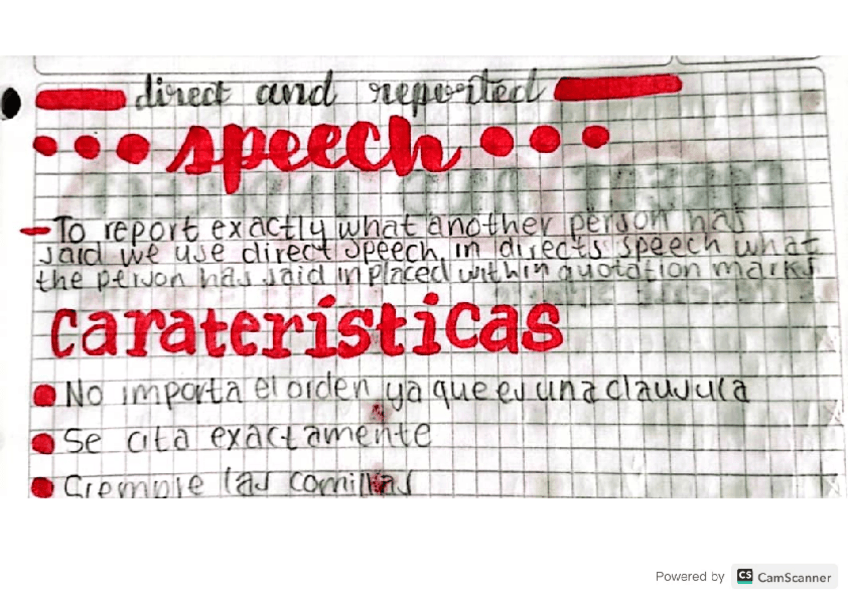 direct and reported
speech
To report exactly what another person has
said we use direct speech, in directs speech what
the person has said in placed within quotation marks
Caraterísticas
No importa el orden ya que es una clausula
Se cita exactamente
Ciempre las comillas
Powered by CS CamScanner